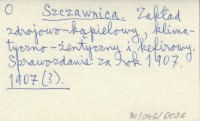 O Szczawnica. Zakład
zdrojowo-kąpielowy, klima-
tyczno-żentyczny i kefirowy.
Sprawozdanie za rok 1907.
1907 (?).